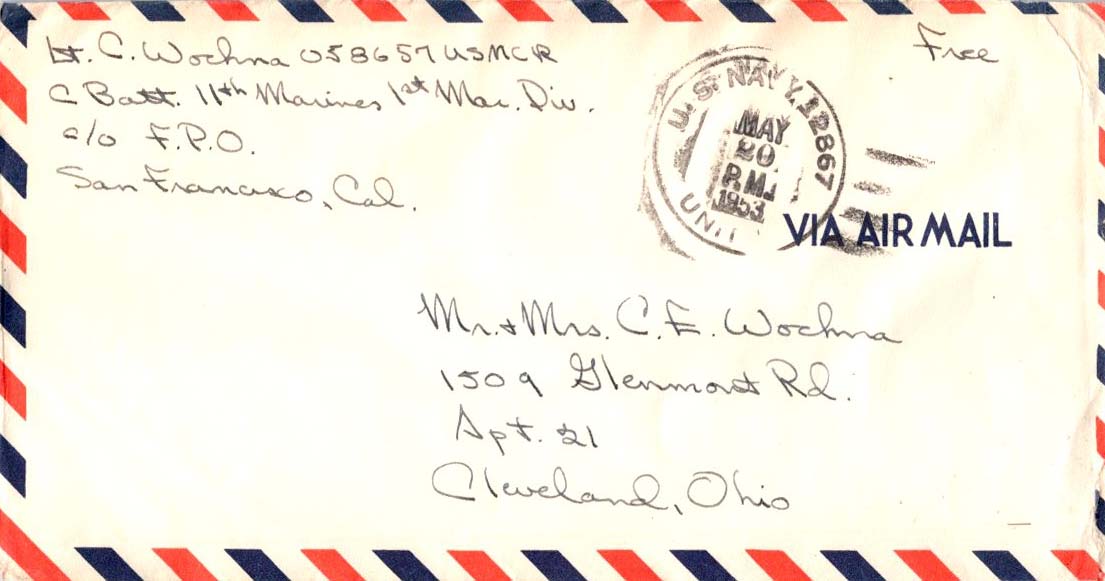 Lt. C. Wochna 058657 USMCR
C Batt. 11th Marines 1st Mar. Div.
c/o F.P.O.
San Francisco, Cal.
Free
U.S. NAVY, 12867
MAY
20
P.M.
1953
UNIT
VIA AIR MAIL
Mr. & Mrs. C. E. Wochna
1509 Glenmont Rd.
Apt. 21
Cleveland, Ohio